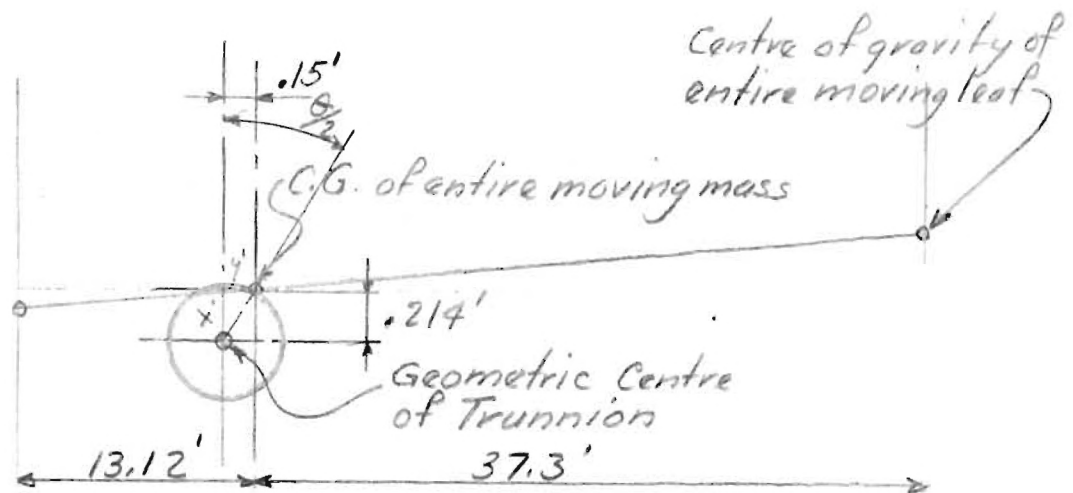 Centre of gravity of
entire moving leaf
.15'
θ/2
C.G. of entire moving mass
y'
x'
.214'
Geometric Centre
of Trunnion
13.12'
37.3'